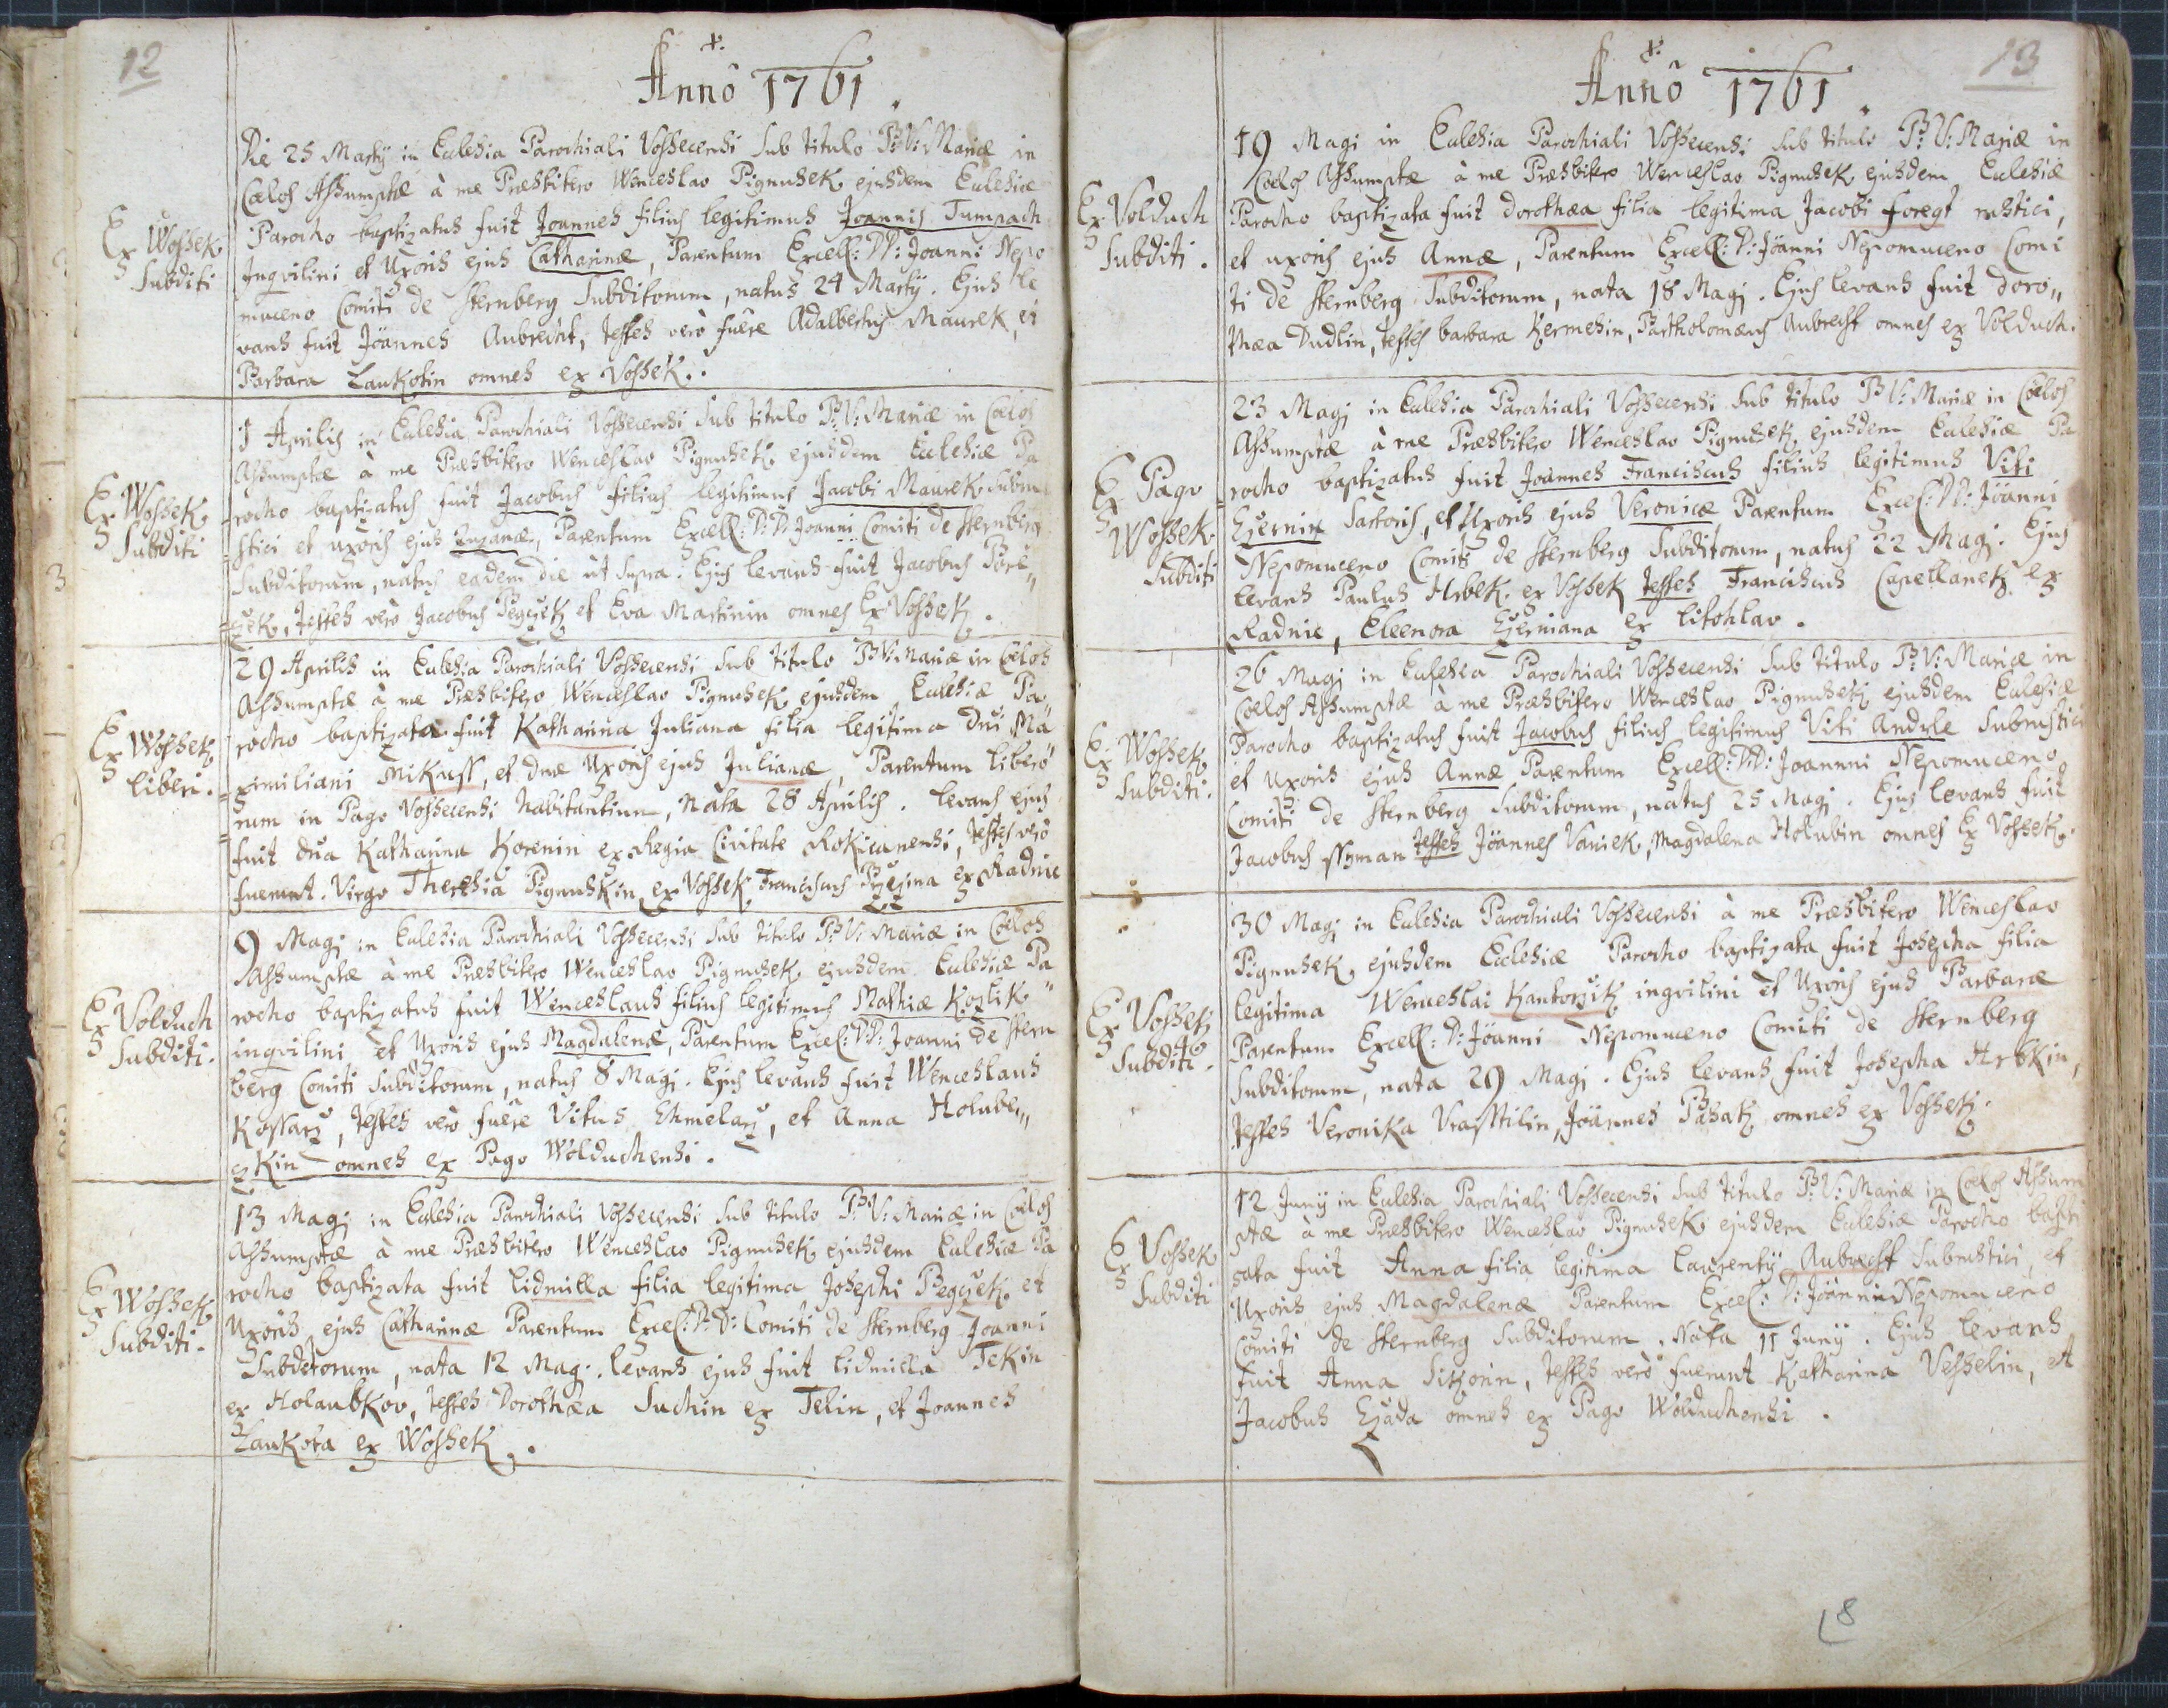 12
Anno 1761.
Ex Wossek
Subditi
Die 25 Martij in Ecclehia Parochiali Vossecensi Sub titulo B: V: Mariæ in
Cœlos Assumptæ à me Præsbitero Wenceslao Pigmusek ejusdem Ecclesiæ
Parocho baptizatus fuit Joannes filius legitimus Joannis Tumpach
Inqvilini et Uxoris ejus Catharinæ, Parentum Excell: DD: Joanni Nepo
muceno Comiti de Sternberg Subditorum, natus 24 Martij. Ejus le
vans fuit Joannes Aubrecht, testes verò fuêre Adalbertus Maurek, et
Barbara Laukotin omnes ex Vossek.
Ex Wossek
Subditi
1 Aprilis in Ecclesia Parochiali Vossecensi Sub titulo B: V: Mariæ in Cœlos
Assumptæ à me Præsbitero Wenceslao Pigmusek ejusdem Ecclesiæ Pa
rocho baptizatus fuit Jacobus filius legitimus Jacobi Maurek Subru
stici et uxoris ejus Parentum Excell: D: D: Joanni Comiti de Sternberg
Subditorum, natus eadem die ùt supra. Ejus levans fuit Jacobus
testes verò Jacobus Pegczek et Eva Martinin omnes Ex Vossek.
Ex Wossek
liberi.
29 Aprilis in Ecclesia Parochiali Vossecensi Sub titulo B: V: Mariæ in Cœlos
Assumptæ à me Præsbitero Wenceslao Pigmusek ejusdem Ecclesiæ Pa„
rocho baptizata fuit Katharina Juliana filia legitima Dni Ma
ximiliani Mikuss, et dnæ Uxoris ejus Julianæ, Parentum libero
rum in Pago Vossecensi habitantium, Nata 28 Aprilis. levans ejus
fuit dna Katharina Korenin ex Regia Civitate Rokicanensi, testes verò
fuerunt. Virgo Theresia Pigmuskin ex Vossek Franciscus ex Radnic
Ex Volduch
Subditi.
9 Magj in Ecclesia Parochiali Vossecensi Sub titulo B: V: Mariæ in Cœlos
Assumptæ à me Præsbitero Wenceslao Pigmusek ejusdem Ecclesiæ Pa„
rocho baptizatus fuit Wenceslaus filius legitimus Mathiæ Kozlik
inqvilini et Uxoris ejus Magdalenæ, Parentum Excel: DD: Joanni de Stern
berg Comiti Subditorum, natus 8 Magj. Ejus levans fuit Wenceslaus
Kossarz, testes verò fuêre Vitus Chmelarz, et Anna Holube„
czkin omnes ex Pago Wolduchensi.
Ex Wossek
Subditi.
13 Magj in Ecclesia Parochiali Vossecensi Sub titulo B: V: Mariæ in Cœlos
Assumptæ à me Præsbitero Wenceslao Pigmusek ejusdem Ecclesiæ Pa
rocho baptizata fuit Lidmilla filia legitima Josephi Pegczek et
Uxoris ejus Catharinæ Parentum Excel: D: D: Comiti de Sternberg Joanni
Subditorum, nata 12 Mag. levans ejus fuit Lidmilla Tekin
ex Holaubkov, testes Dorothæa Suchin ex Telin, et Joannes
Laukota ex Wossek.
13
Anno 1761.
Ex Volduch
Subditi.
19 Magj in Ecclesia Parochiali Vossecensi Sub titulo B: V: Mariæ in
Cœlos Assumptæ à me Præsbitero Wenceslao Pigmusek ejusdem Ecclesiæ
Parocho baptizata fuit dorothæa filia legitima Jacobi Foregt rustici,
et uxoris ejus Annæ, Parentum Excell: D: Joanni Nepomuceno Comi
ti de Sternberg Subditorum, nata 18 Magj. Ejus levans fuit doro„
thæa Dudlin, testes barbara Kermesin, Bartholomæus Aubrecht omnes ex Volduch.
Ex Pago
Wossek
Subditi
23 Magj in Ecclesia Parochiali Vossecensi Sub titulo B: V: Mariæ in Cœlos
Assumptæ à me Præsbitero Wenceslao Pigmusek ejusdem Ecclesiæ Pa
rocho baptizatus fuit Joannes Franciscus filius legitimus Viti
Czernix Sartoris, et Uxoris ejus Veronicæ Parentum Excel: DD: Joanni
Nepomuceno Comiti de Sternberg Subditorum, natus 22 Magj. Ejus
levans Paulus Hrbek ex Vossek testes Franciscus Capellanek ex
Radnic, Eleenora Czerniana ex Litohlav.
Ex Wossek
Subditi.
26 Magj in Ecclesia Parochiali Vossecensi Sub titulo B: V: Mariæ in
Cœlos Assumptæ à me Præsbitero Wenceslao Pigmusek ejusdem Ecclesiæ
Parocho baptizatus fuit Jacobus filius legitimus Viti Andrle Subrustici
et Uxoris ejus Annæ Parentum Excell: DD: Joannni Nepomuceno
Comiti de Sternberg Subditorum, natus 25 Magj. Ejus levans fuit
Jacobus Ssyman testes Joannes Vaniek, Magdalena Holubin omnes Ex Vossek.
Ex Vossek
46
Subditi.
30 Magj in Ecclesia Parochiali Vossecensi à me Præsbitero Wenceslao
Pigmusek ejusdem Ecclesiæ Parocho baptizata fuit Josepha filia
legitima Wenceslai Kantorzik inqvilini et Uxoris ejus Barbaræ
Parentum Excell: D: Joanni Nepomuceno Comiti de Sternberg
Subditorum, nata 29 Magj. Ejus levans fuit Josepha Hrbkin,
testes Veronika Vrasstilin, Joannes Pasak omnes ex Vossek.
Ex Vossek
Subditi
12 Junij in Ecclesia Parochiali Vossecensi Sub titulo B: V: Mariæ in Cœlos Assum
ptæ à me Præsbitero Wenceslao Pigmusek ejusdem Ecclesiæ Parocho bapti
zata fuit Anna filia legitima Laurentij Aubrecht Subrustici, et
Uxoris ejus Magdalenæ Parentum Excel: D: Joanni Nepomuceno
Comiti de Sternberg Subditorum. Nata 11 Junij. Ejus levans
fuit Anna Sikorin, testes verò fuerunt Katharina Vesselin, et
Jacobus Czada omnes ex Pago Wolduchensi.
8